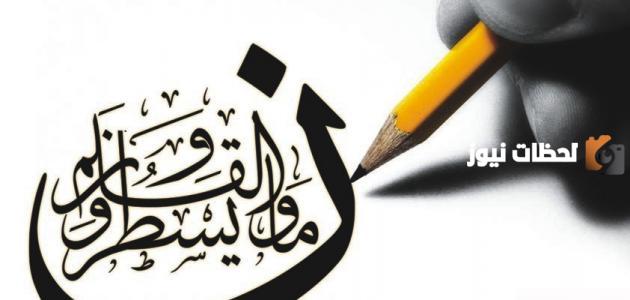 ن والقلم وما يسطرون
لحظات نيوز